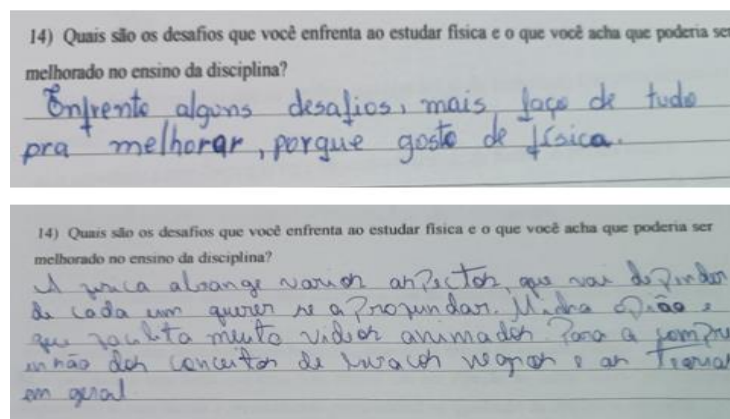 14) Quais são os desafios que você enfrenta ao estudar física e o que você acha que poderia ser
melhorado no ensino da disciplina?
Enfrento alguns desafios, mais faço de tudo
pra melhorar, porque gosto de física.
14) Quais são os desafios que você enfrenta ao estudar física e o que você acha que poderia ser
melhorado no ensino da disciplina?
A física abrange varios aspectos, que vai depinder
de cada um querer se aprofundar. Minha opião e
que facilita muito vidios animados para a compre
ensão dos conceitos de buracos negros e as teorias
em geral